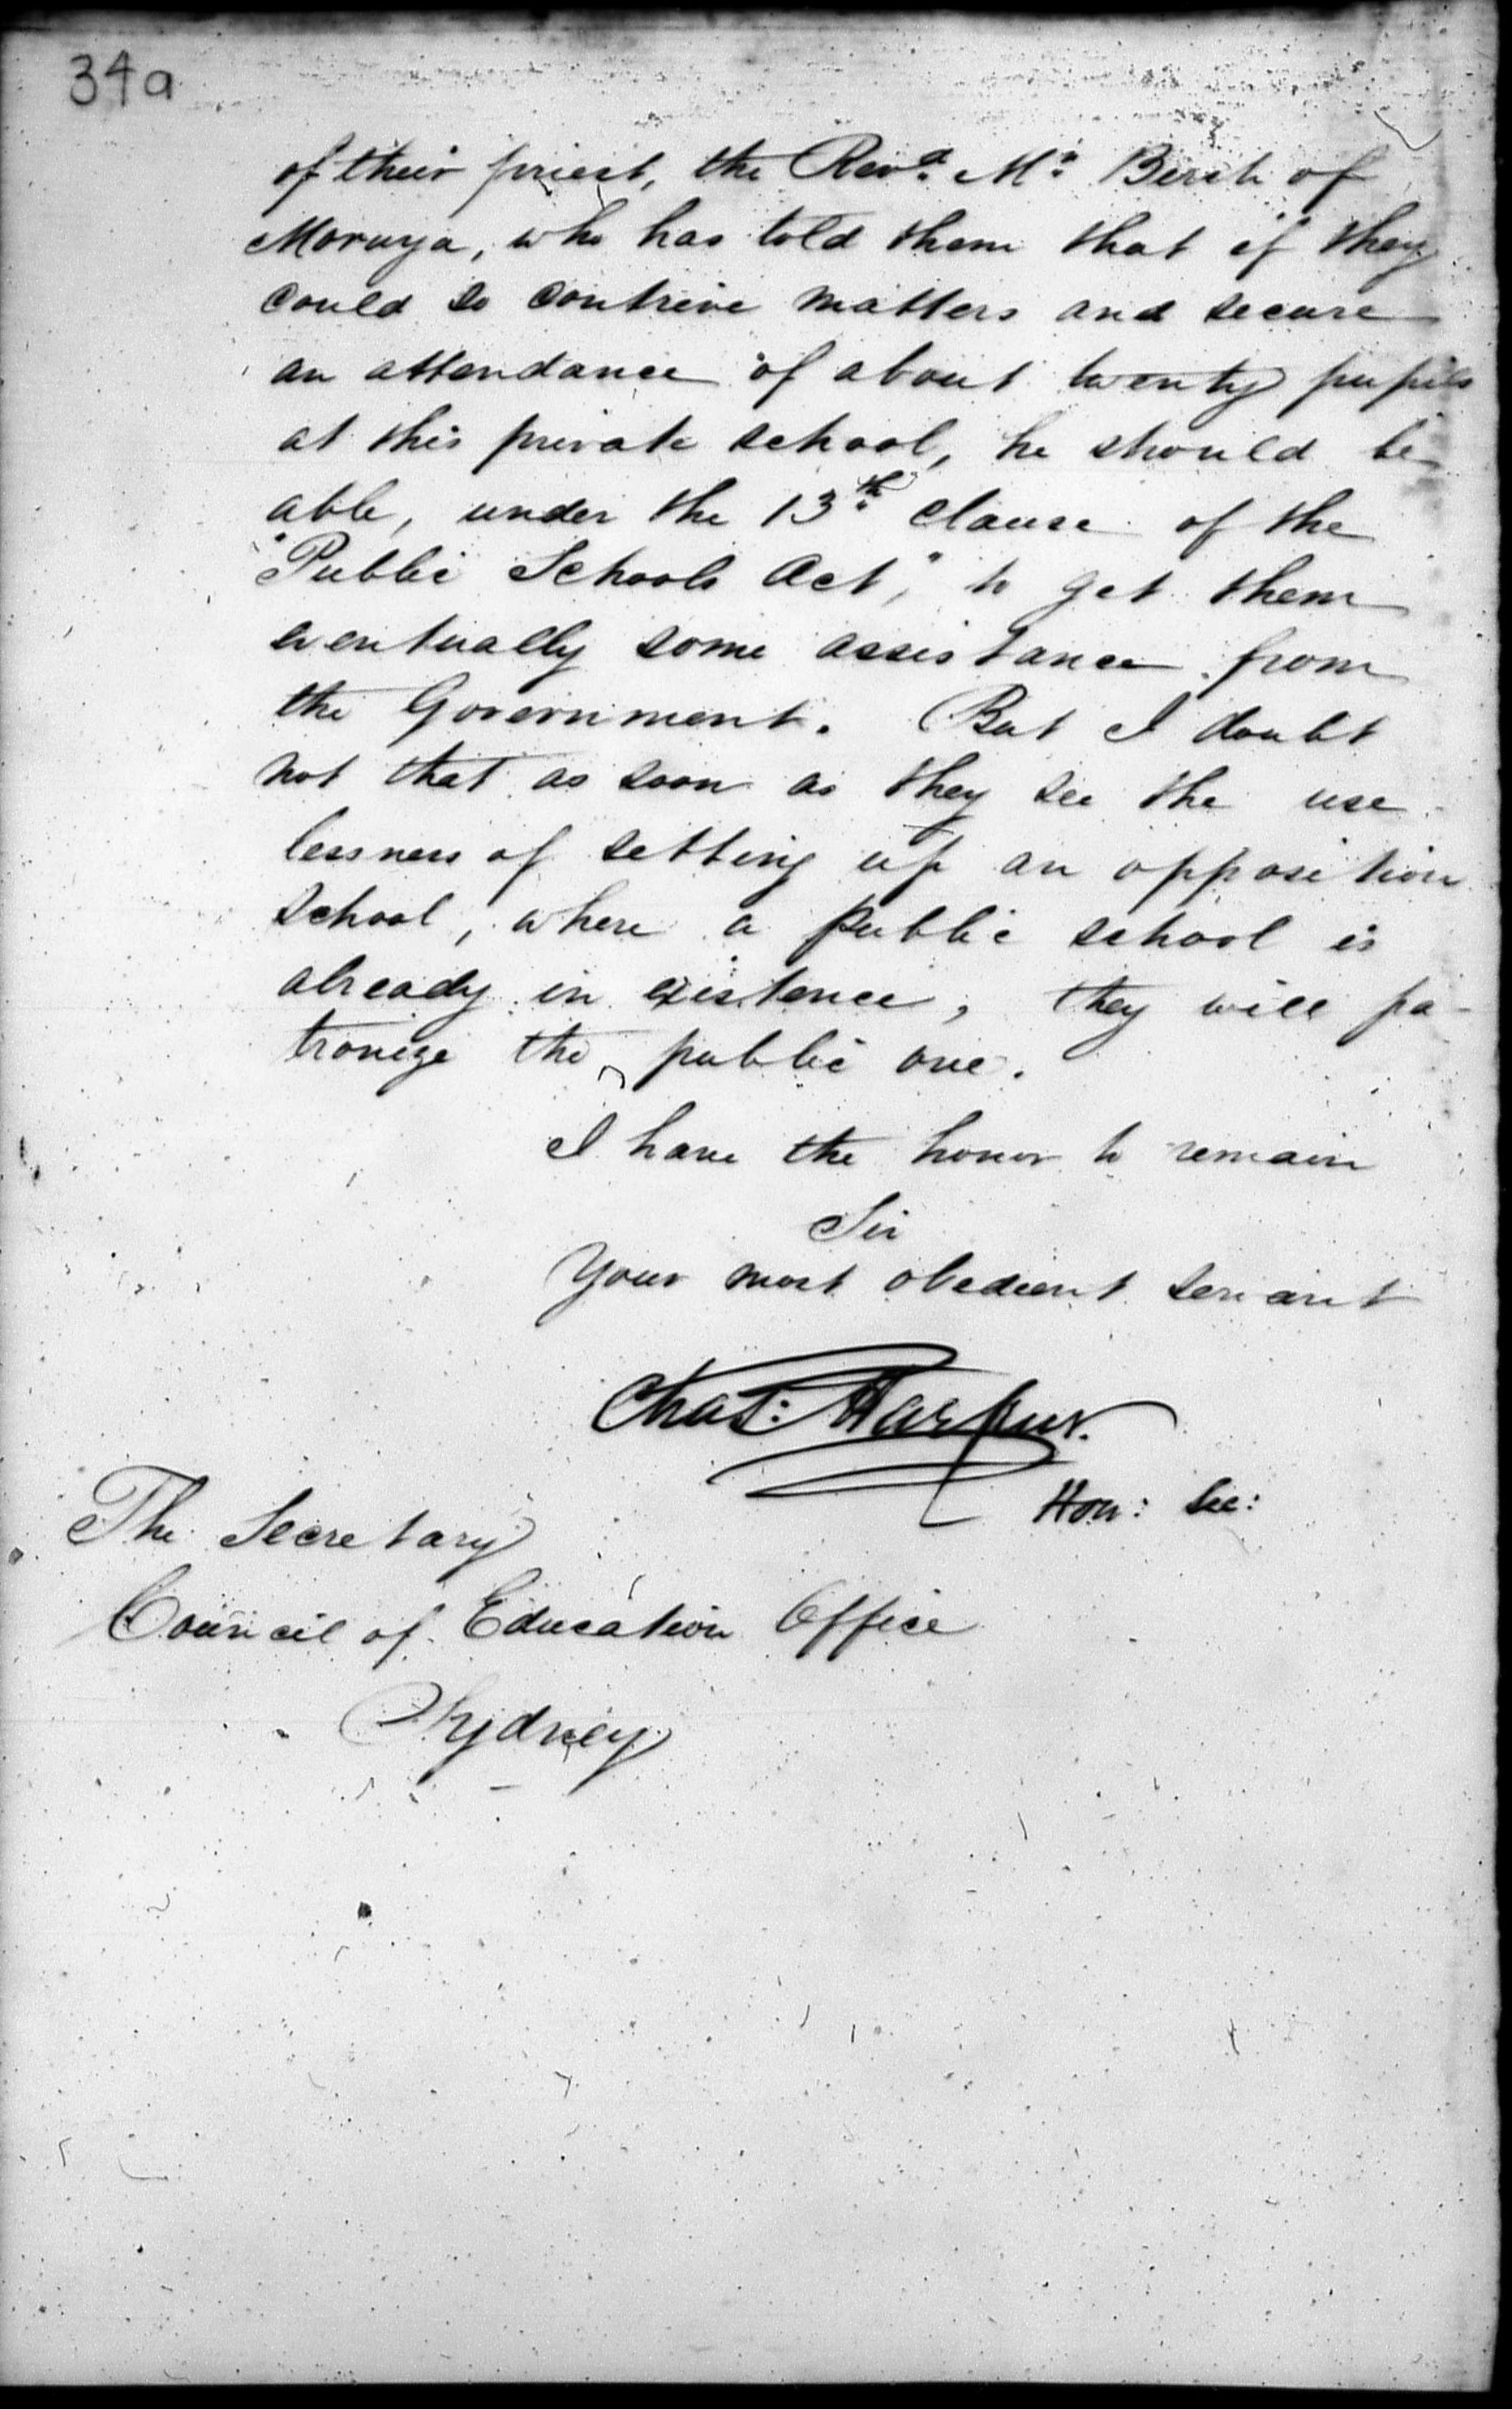 34a
of their priest, the Revd. Mr. Birch of
Moruya, who has told them that if they
could so contrive matters and secure
an attendance of about twenty pupils
at this private school, he should be
able, under the 13th. clause of the
"Public Schools Act," to get them
eventually some assistance from
the Government. But I doubt
not that as soon as they see the use
lessness of setting up an opposition
school, where a public school is
already in existence, they will pa-
tronize the public one.
I have the honor to remain
Sir
Your most obedient servant
Chas: Harpur.
Hon: Sec:
The Secretary
Council of Education Office
Sydney